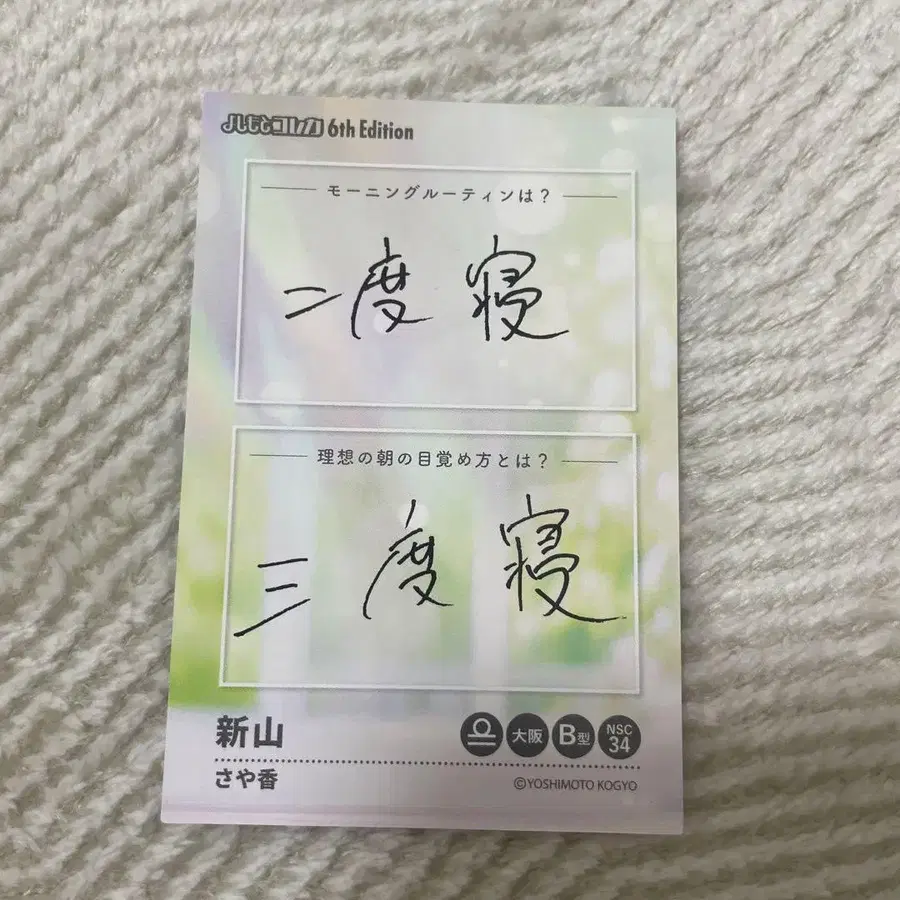 よしもとコレカ 6th Edition
モーニングルーティンは？
二度寝
理想の朝の目覚め方とは？
三度寝
新山
♎ 大阪 B型 NSC 34
さや香
©YOSHIMOTO KOGYO